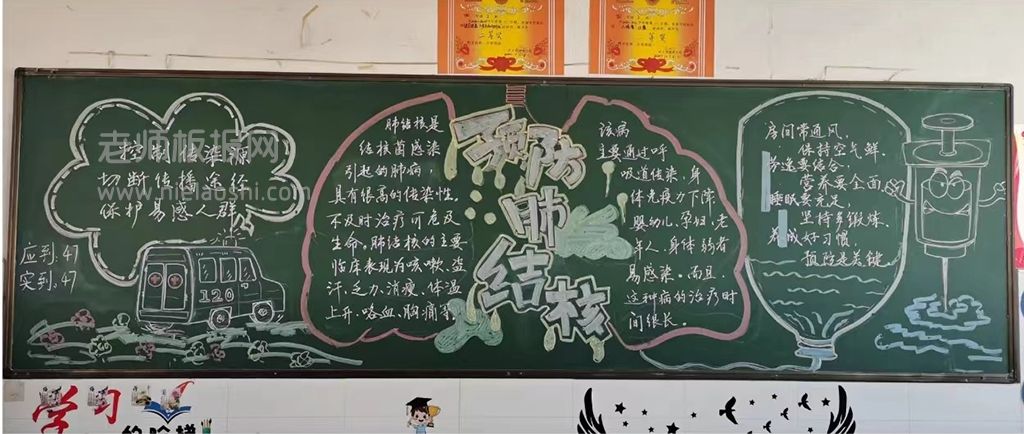 二等奖
一等奖
老师板报网
www.hielaoshi.com
控制传染源
切断传播途径
保护易感人群
应到:47
实到:47
120
肺结核是
结核菌感染
引起的肺病,
具有很高的传染性。
不及时治疗可危及
生命,肺结核的主要
临床表现为咳嗽、盗
汗、乏力、消瘦、体温
上升、咯血、胸痛等。
预防肺结核
该病
主要通过呼
吸道传染,身
体免疫力下降,
婴幼儿、孕妇、老
年人、身体弱者
易感染。而且,
这种病的治疗时
间很长。
房间常通风,
保持空气鲜,
劳逸要结合,
营养要全面,
睡眠要充足,
坚持多锻炼,
养成好习惯,
预防是关键
学习
的阶梯